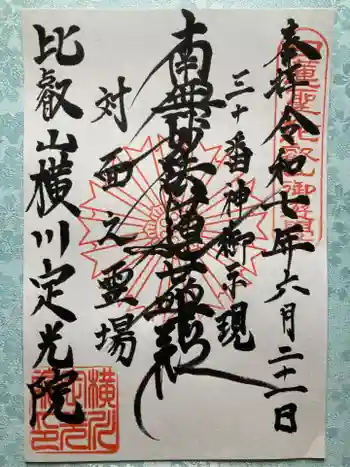 奉拝 令和七年六月二十一日
三十番神御示現
南無妙法蓮華経
対面之霊場
比叡山横川定光院